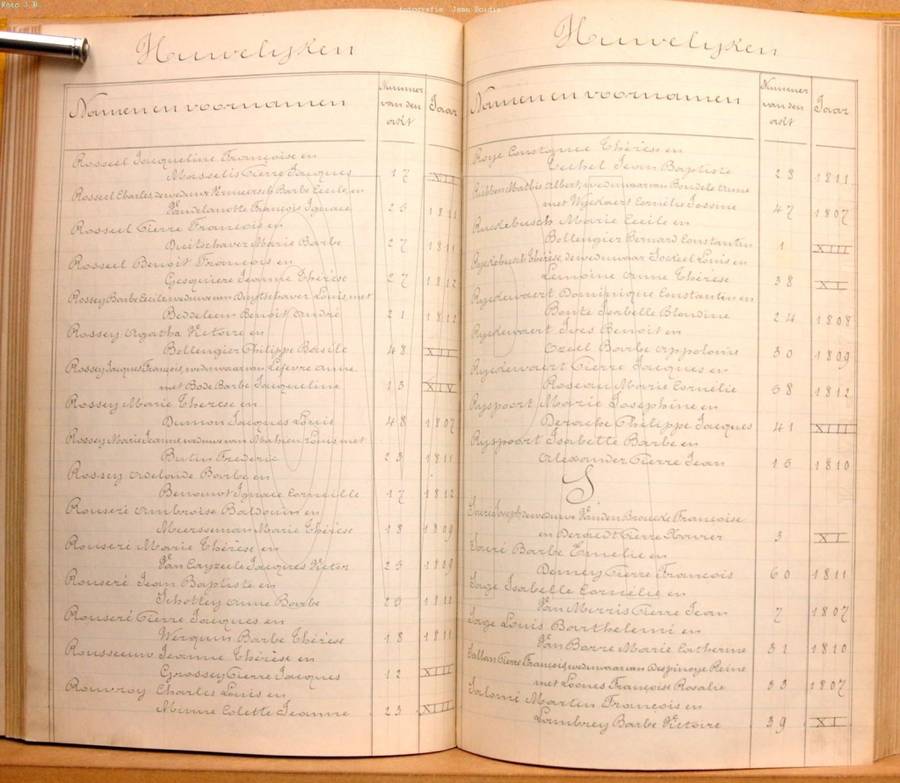 Foto J.B.
Fotografie Jean Boudis
Huwelijken
Namen en voornamen Nummer van den acht Jaar
Rosseel Jacqueline Françoise en
Masselis Pierre Jacques 17 XII
Rosseel Charles de weduwe Vermeersch Barbe Cecile en
Vandelanotte François Ignace 25 1811
Rosseel Pierre François en
Duitschaver Marie Barbe 27 1811
Rosseel Benoit François en
Gesquiere Jeanne Thérèse 27 1812
Rossey Barbe Cecile weduwe van Duytschaver Louis met
Beddeleem Benoit André 21 1812
Rossey Agatha Victoire en
Bellengier Philippe Basile 48 XII
Rossey Jacques François, weduwaar van Lefevre Anne
met Bode Barbe Jacqueline 13 XIV
Rossey Marie Therese en
Dumon Jacques Louis 48 1807
Rossey Marie Jeanne weduwe van Mahieu Louis met
Butin Frederic 23 1811
Rossey Adelaïde Barbe en
Benounot Ignace Corneille 17 1812
Rouseré Ambroise Balduin en
Meersseman Marie Thérèse 18 1809
Rouseré Marie Thérèse en
Van Cayzeele Jacques Victor 25 1809
Rouseré Jean Baptiste en
Schottey Anne Barbe 25 1811
Rouseré Pierre Jacques en
Werquin Barbe Thérèse 18 1811
Rousseeuw Jeanne Thérèse en
Grossey Pierre Jacques 12 XIII
Rouvroy Charles Louis en
Minne Colette Jeanne 23 XIII
Huwelijken
Namen en voornamen Nummer van den acht Jaar
Roye Constance Thérèse en
Luchel Jean Baptiste 28 1811
Rubben Mathis Albert, weduwaar van Houdele Anne
met Wyckaert Cornélie Jossine 47 1807
Ruckebusch Marie Cecile en
Bellengier Bernard Constantin 1 XIII
Ryckebusch Thérèse de weduwaar Jockeel Louis en
Lemoine Anne Thérèse 38 XI
Ryckewaert Dominique Constantin en
Bonte Isabelle Blondine 24 1808
Ryckewaert Ives Benoit en
Ozeel Barbe Appolonie 30 1809
Ryckewaert Pierre Jacques en
Roseau Marie Cornélie 38 1812
Ryspoort Marie Josephine en
Deracke Philippe Jacques 41 XIII
Ryspoort Isabelle Barbe en
Alexander Pierre Jean 15 1810
S
Joseph de weduwe Vanden Broucke Françoise
en Desmedt Pierre Xavier 3 XI
Barbe Emelie en
Demey Pierre François 60 1811
Sage Isabelle Cornélie en
Van Merris Pierre Jean 7 1807
Sage Louis Barthelemi en
Van Barre Marie Catherine 31 1810
Pierre François, weduwaar van Despinoye Reine
met Loones Françoise Rosalie 33 1807
Salomé Martin François en
Lambrey Barbe Victoire 39 XI